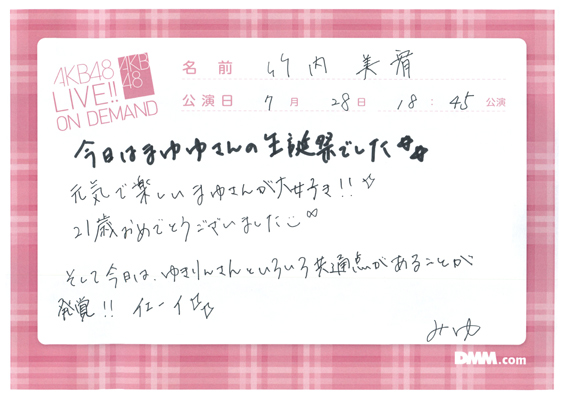 AKB48
LIVE!!
ON DEMAND
AKB
48
名前 竹内美宥
公演日 7月 28日 18:45 公演
今日はまゆゆさんの生誕祭でした
元気で楽しいまゆさんが大好き!!☆
21歳おめでとうございました
そして今日は、ゆきりんさんといろいろ共通点があることが
発覚!! イェーイ☆☆
みゆ
DMM.com